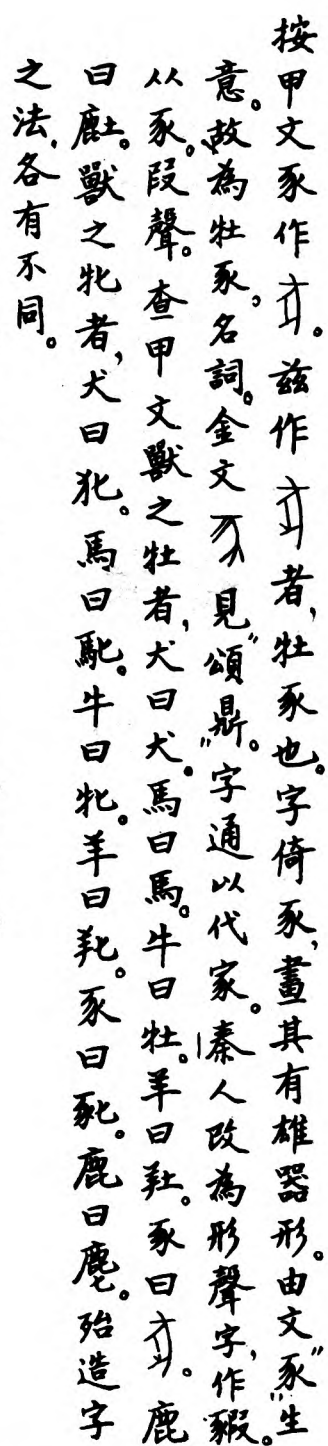 按甲文豕作。茲作者,牡豕也。字倚豕,畫其有雄器形。由文"豕"生
意。故為牡豕,名詞。金文見"頌鼎"。字通以代家。秦人改為形聲字,作豭。
从豕。叚聲。查甲文獸之牡者,犬曰犬。馬曰馬。牛曰牡。羊曰𦍔。豕曰。鹿
曰𪊍。獸之牝者,犬曰犯。馬曰䭾。牛曰牝。羊曰𦍒。豕曰豝。鹿曰麀。殆造字
之法,各有不同。